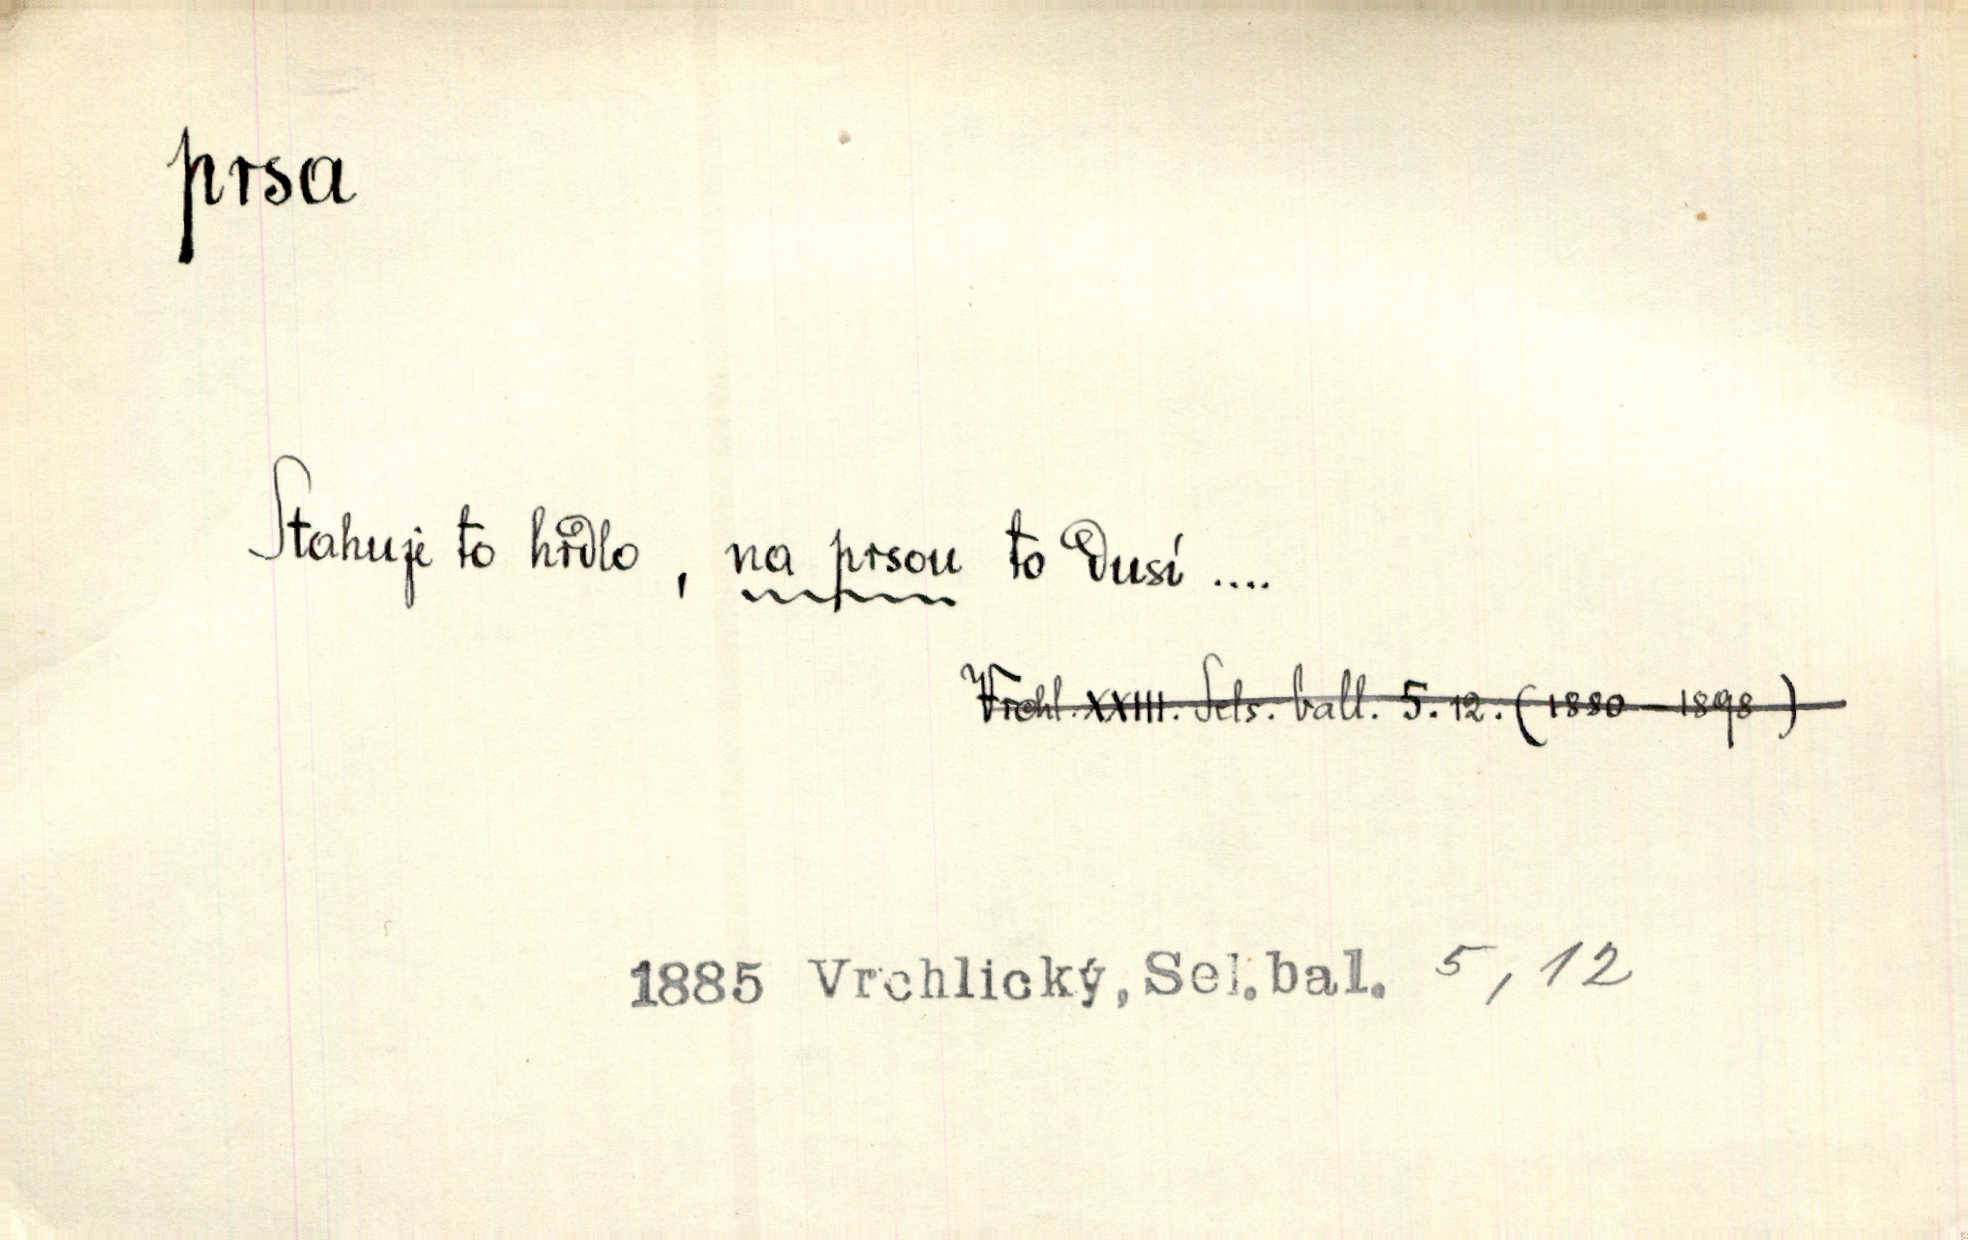 prsa
Stahuje to hrdlo, na prsou to dusí ....
Vrchl. XXIII. Sels. ball. 5. 12. (1880 - 1898)
1885 Vrchlický, Sel. bal. 5, 12